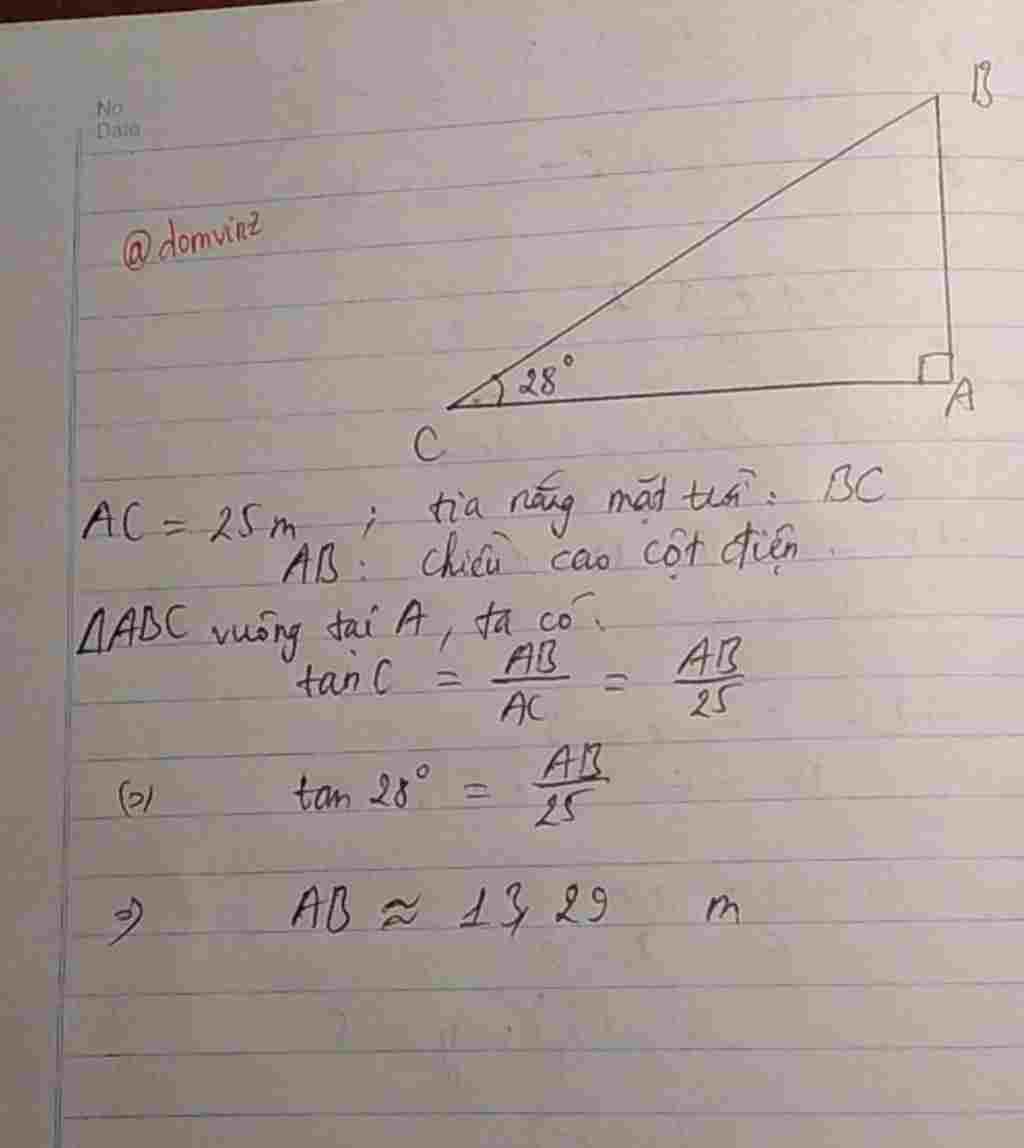 No
Date
B
@domvinz
28°
A
C
AC = 25m ; tia nắng mặt trời: BC
AB: chiều cao cột điện
ΔABC vuông tại A, ta có:
tan C = AB/AC = AB/25
(=) tan 28° = AB/25
=) AB ≈ 13,29 m